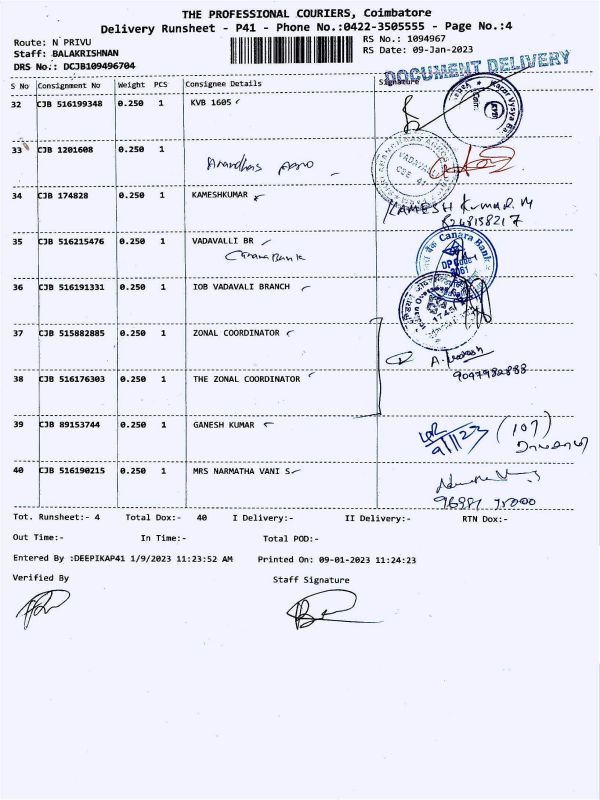 THE PROFESSIONAL COURIERS, Coimbatore
Delivery Runsheet - P41 - Phone No.:0422-3505555 - Page No.:4
Route: N PRIVU
RS No.: 1094967
Staff: BALAKRISHNAN
RS Date: 09-Jan-2023
DRS No.: DCJB109496704
DOCUMENT DELIVERY
S No Consignment No Weight PCS Consignee Details Signature
32 CJB 516199348 0.250 1 KVB 1605
33 CJB 1201608 0.250 1
34 CJB 174828 0.250 1 KAMESHKUMAR
KAMESH KUMAR. M
8248158217
35 CJB 516215476 0.250 1 VADAVALLI BR
Canara Bank
Canara Bank
36 CJB 516191331 0.250 1 IOB VADAVALI BRANCH
37 CJB 515882885 0.250 1 ZONAL COORDINATOR
9047982888
38 CJB 516176303 0.250 1 THE ZONAL COORDINATOR
39 CJB 89153744 0.250 1 GANESH KUMAR
9/1/23 (107)
40 CJB 516190215 0.250 1 MRS NARMATHA VANI S
Tot. Runsheet:- 4 Total Dox:- 40 I Delivery:- II Delivery:- RTN Dox:-
Out Time:- In Time:- Total POD:-
Entered By :DEEPIKAP41 1/9/2023 11:23:52 AM Printed On: 09-01-2023 11:24:23
Verified By Staff Signature